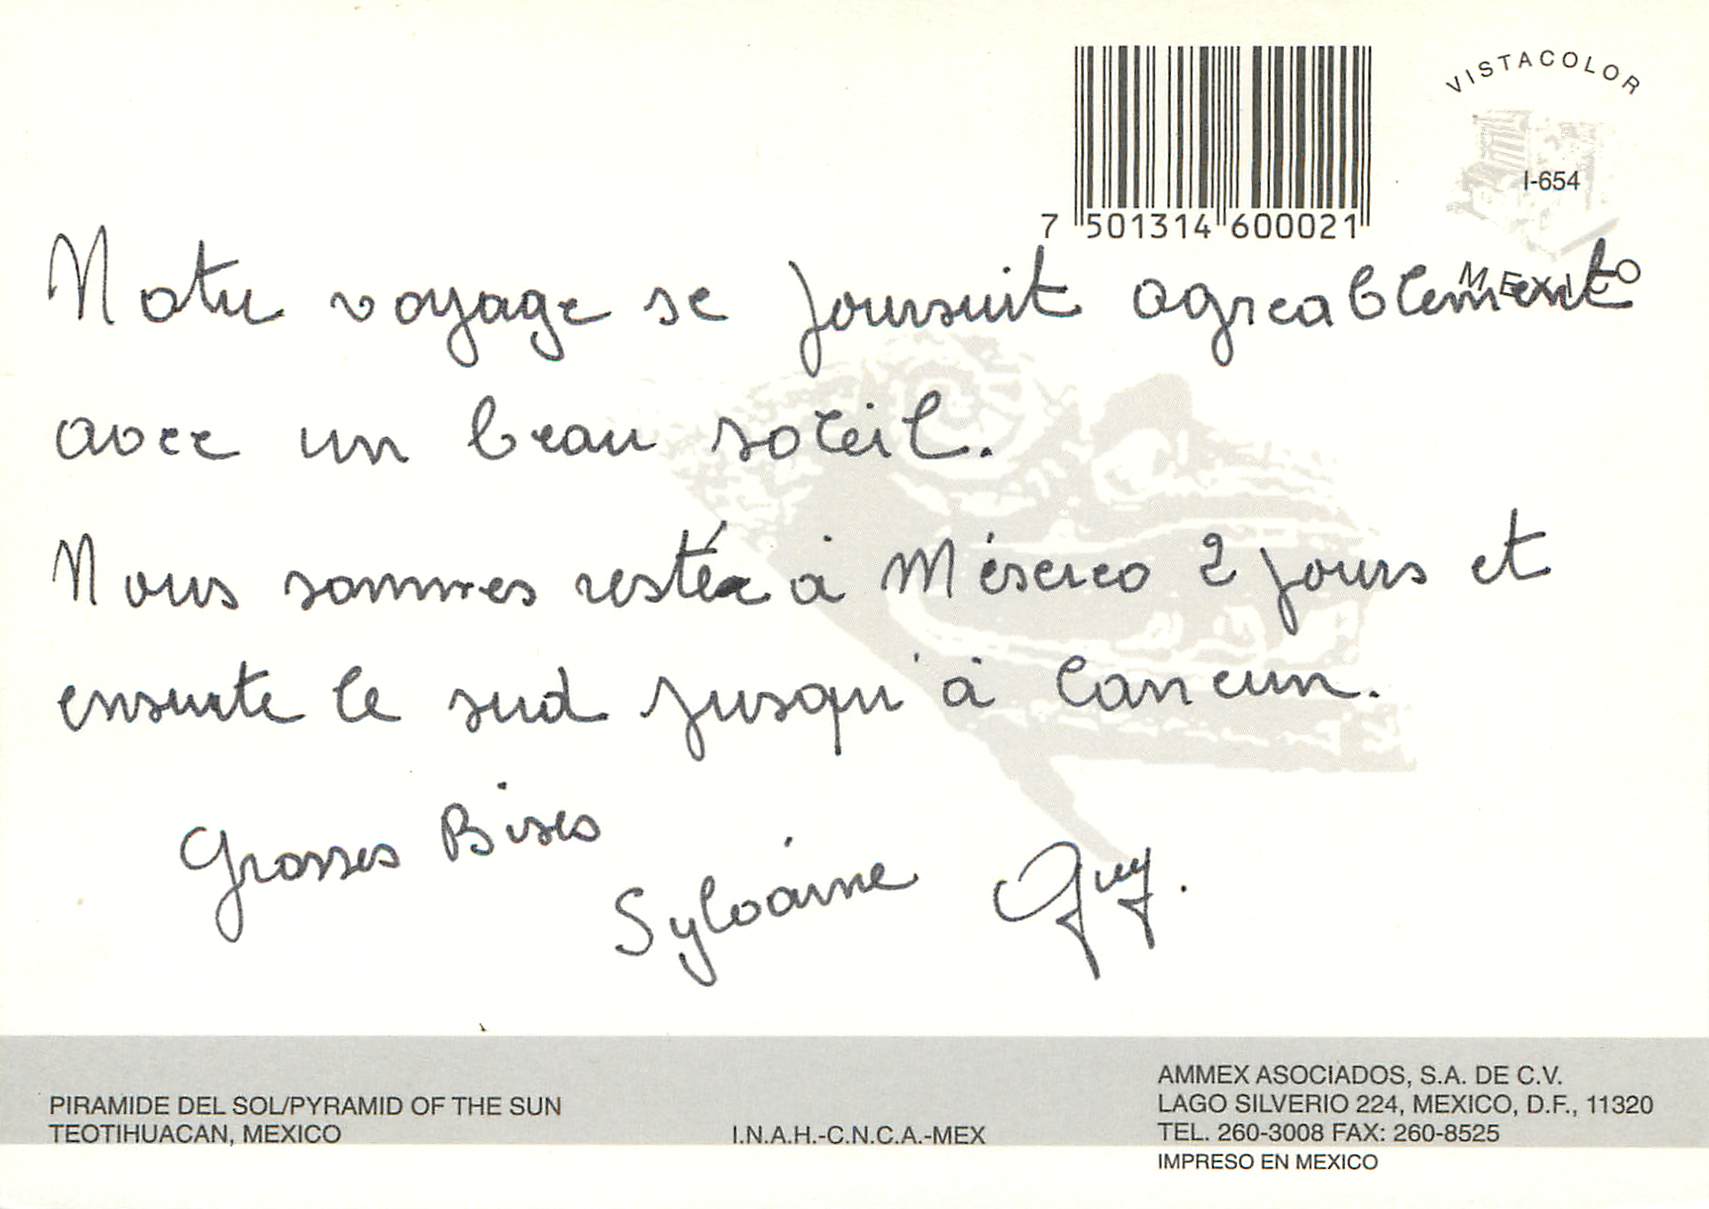 VISTACOLOR
I-654
MEXICO
7 501314 600021
Notre voyage se poursuit agréablement
avec un beau soleil.
Nous sommes restés à México 2 jours et
ensuite le sud jusqu'à Cancun.
Grosses Bises
Sylvaine Guy.
PIRAMIDE DEL SOL/PYRAMID OF THE SUN
TEOTIHUACAN, MEXICO
I.N.A.H.-C.N.C.A.-MEX
AMMEX ASOCIADOS, S.A. DE C.V.
LAGO SILVERIO 224, MEXICO, D.F., 11320
TEL. 260-3008 FAX: 260-8525
IMPRESO EN MEXICO